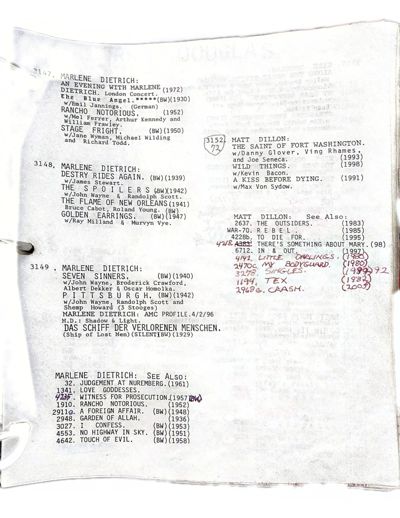 3147. MARLENE DIETRICH:
AN EVENING WITH MARLENE (1972)
DIETRICH. London Concert.
the Blue Angel.*****(BW)(1930)
w/Emil Jannings. (German)
RANCHO NOTORIOUS. (1952)
w/Mel Ferrer, Arthur Kennedy and
William Frawley.
STAGE FRIGHT. (BW)(1950)
w/Jane Wyman, Michael Wilding
and Richard Todd.
3148. MARLENE DIETRICH:
DESTRY RIDES AGAIN. (BW)(1939)
w/James Stewart.
THE SPOILERS (BW)(1942)
w/John Wayne & Randolph Scott.
THE FLAME OF NEW ORLEANS(1941)
Bruce Cabot, Roland Young. (BW)
GOLDEN EARRINGS. (BW)(1947)
w/Ray Milland & Murvyn Vye.
3149. MARLENE DIETRICH:
SEVEN SINNERS. (BW)(1940)
w/John Wayne, Broderick Crawford,
Albert Dekker & Oscar Homolka.
PITTSBURGH. (BW)(1942)
w/John Wayne, Randolph Scott and
Shemp Howard (3 Stooges)
MARLENE DIETRICH: AMC PROFILE.4/2/96
M.D.: Shadow & Light.
DAS SCHIFF DER VERLORENEN MENSCHEN.
(Ship of Lost Men)(SILENT)(BW)(1929)
MARLENE DIETRICH: See Also:
32. JUDGEMENT AT NUREMBERG.(1961)
1341. LOVE GODDESSES.
WITNESS FOR PROSECUTION.(1957)(BW)
1910. RANCHO NOTORIOUS. (1952)
2911a. A FOREIGN AFFAIR. (BW)(1948)
2948. GARDEN OF ALLAH. (1936)
3027. I CONFESS. (BW)(1953)
4553. NO HIGHWAY IN SKY. (BW)(1951)
4642. TOUCH OF EVIL. (BW)(1958)
3152. MATT DILLON:
72 THE SAINT OF FORT WASHINGTON.
w/Danny Glover, Ving Rhames,
and Joe Seneca. (1993)
WILD THINGS. (1998)
w/Kevin Bacon.
A KISS BEFORE DYING. (1991)
w/Max Von Sydow.
MATT DILLON: See Also:
2637. THE OUTSIDERS. (1983)
WAR-70. REBEL. (1985)
4228b. TO DIE FOR. (1995)
THERE'S SOMETHING ABOUT MARY.(98)
6712. IN & OUT. (1997)
4141. LITTLE DARLINGS. (1980)
2470c. MY BODYGUARD. (1980)
3278. SINGLES. 92
1194. TEX (1982)
2968G. CRASH. (2005)